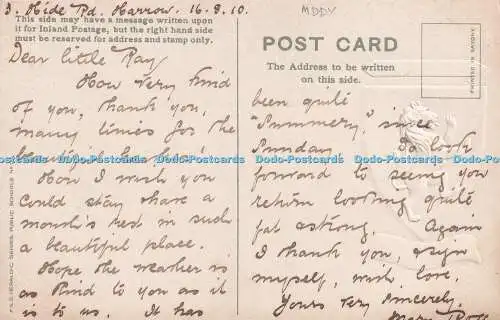 3. Hide Rd. Harrow. 16.8.10.
This side may have a message written upon
it for Inland Postage, but the right hand side
must be reserved for address and stamp only.
Dear little Ray
How very kind
of you, thank you,
many times for the
beautiful
How I wish you
could stay have a
month's rest in such
a beautiful place.
Hope the weather is
as kind to you as it
is to us. It has
MDDY
POST CARD
The Address to be written
on this side.
PRINTED IN SAXONY
been quite
"Summery" since
Sunday. So look
forward to seeing you
return looking quite
fat & strong. Again
I thank you, & sign
myself, with love,
Yours very sincerely.
F.A.S. HERALDIC SERIES. PUBLIC SCHOOLS
Dodo Postcards Dodo Postcards Dodo Postcards Dodo Postcards Dodo Postcards